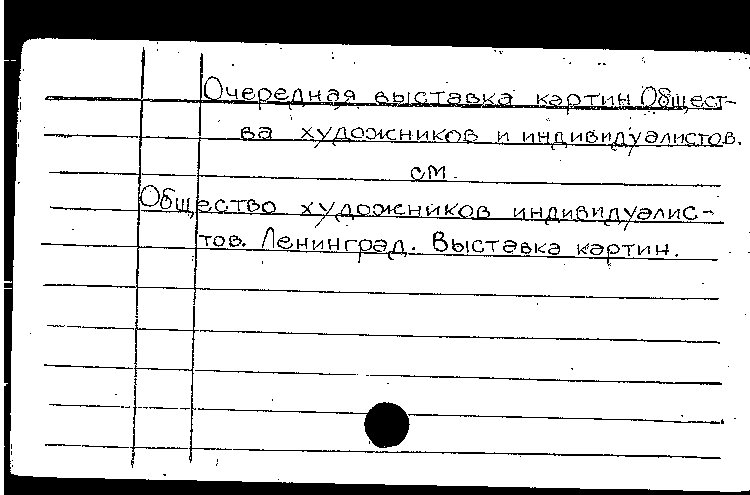 Очередная выставка картин Общест-
ва художников и индивидуалистов.
см.
Общество художников индивидуалис-
тов. Ленинград. Выставка картин.